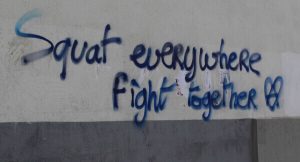 Squat everywhere
fight together